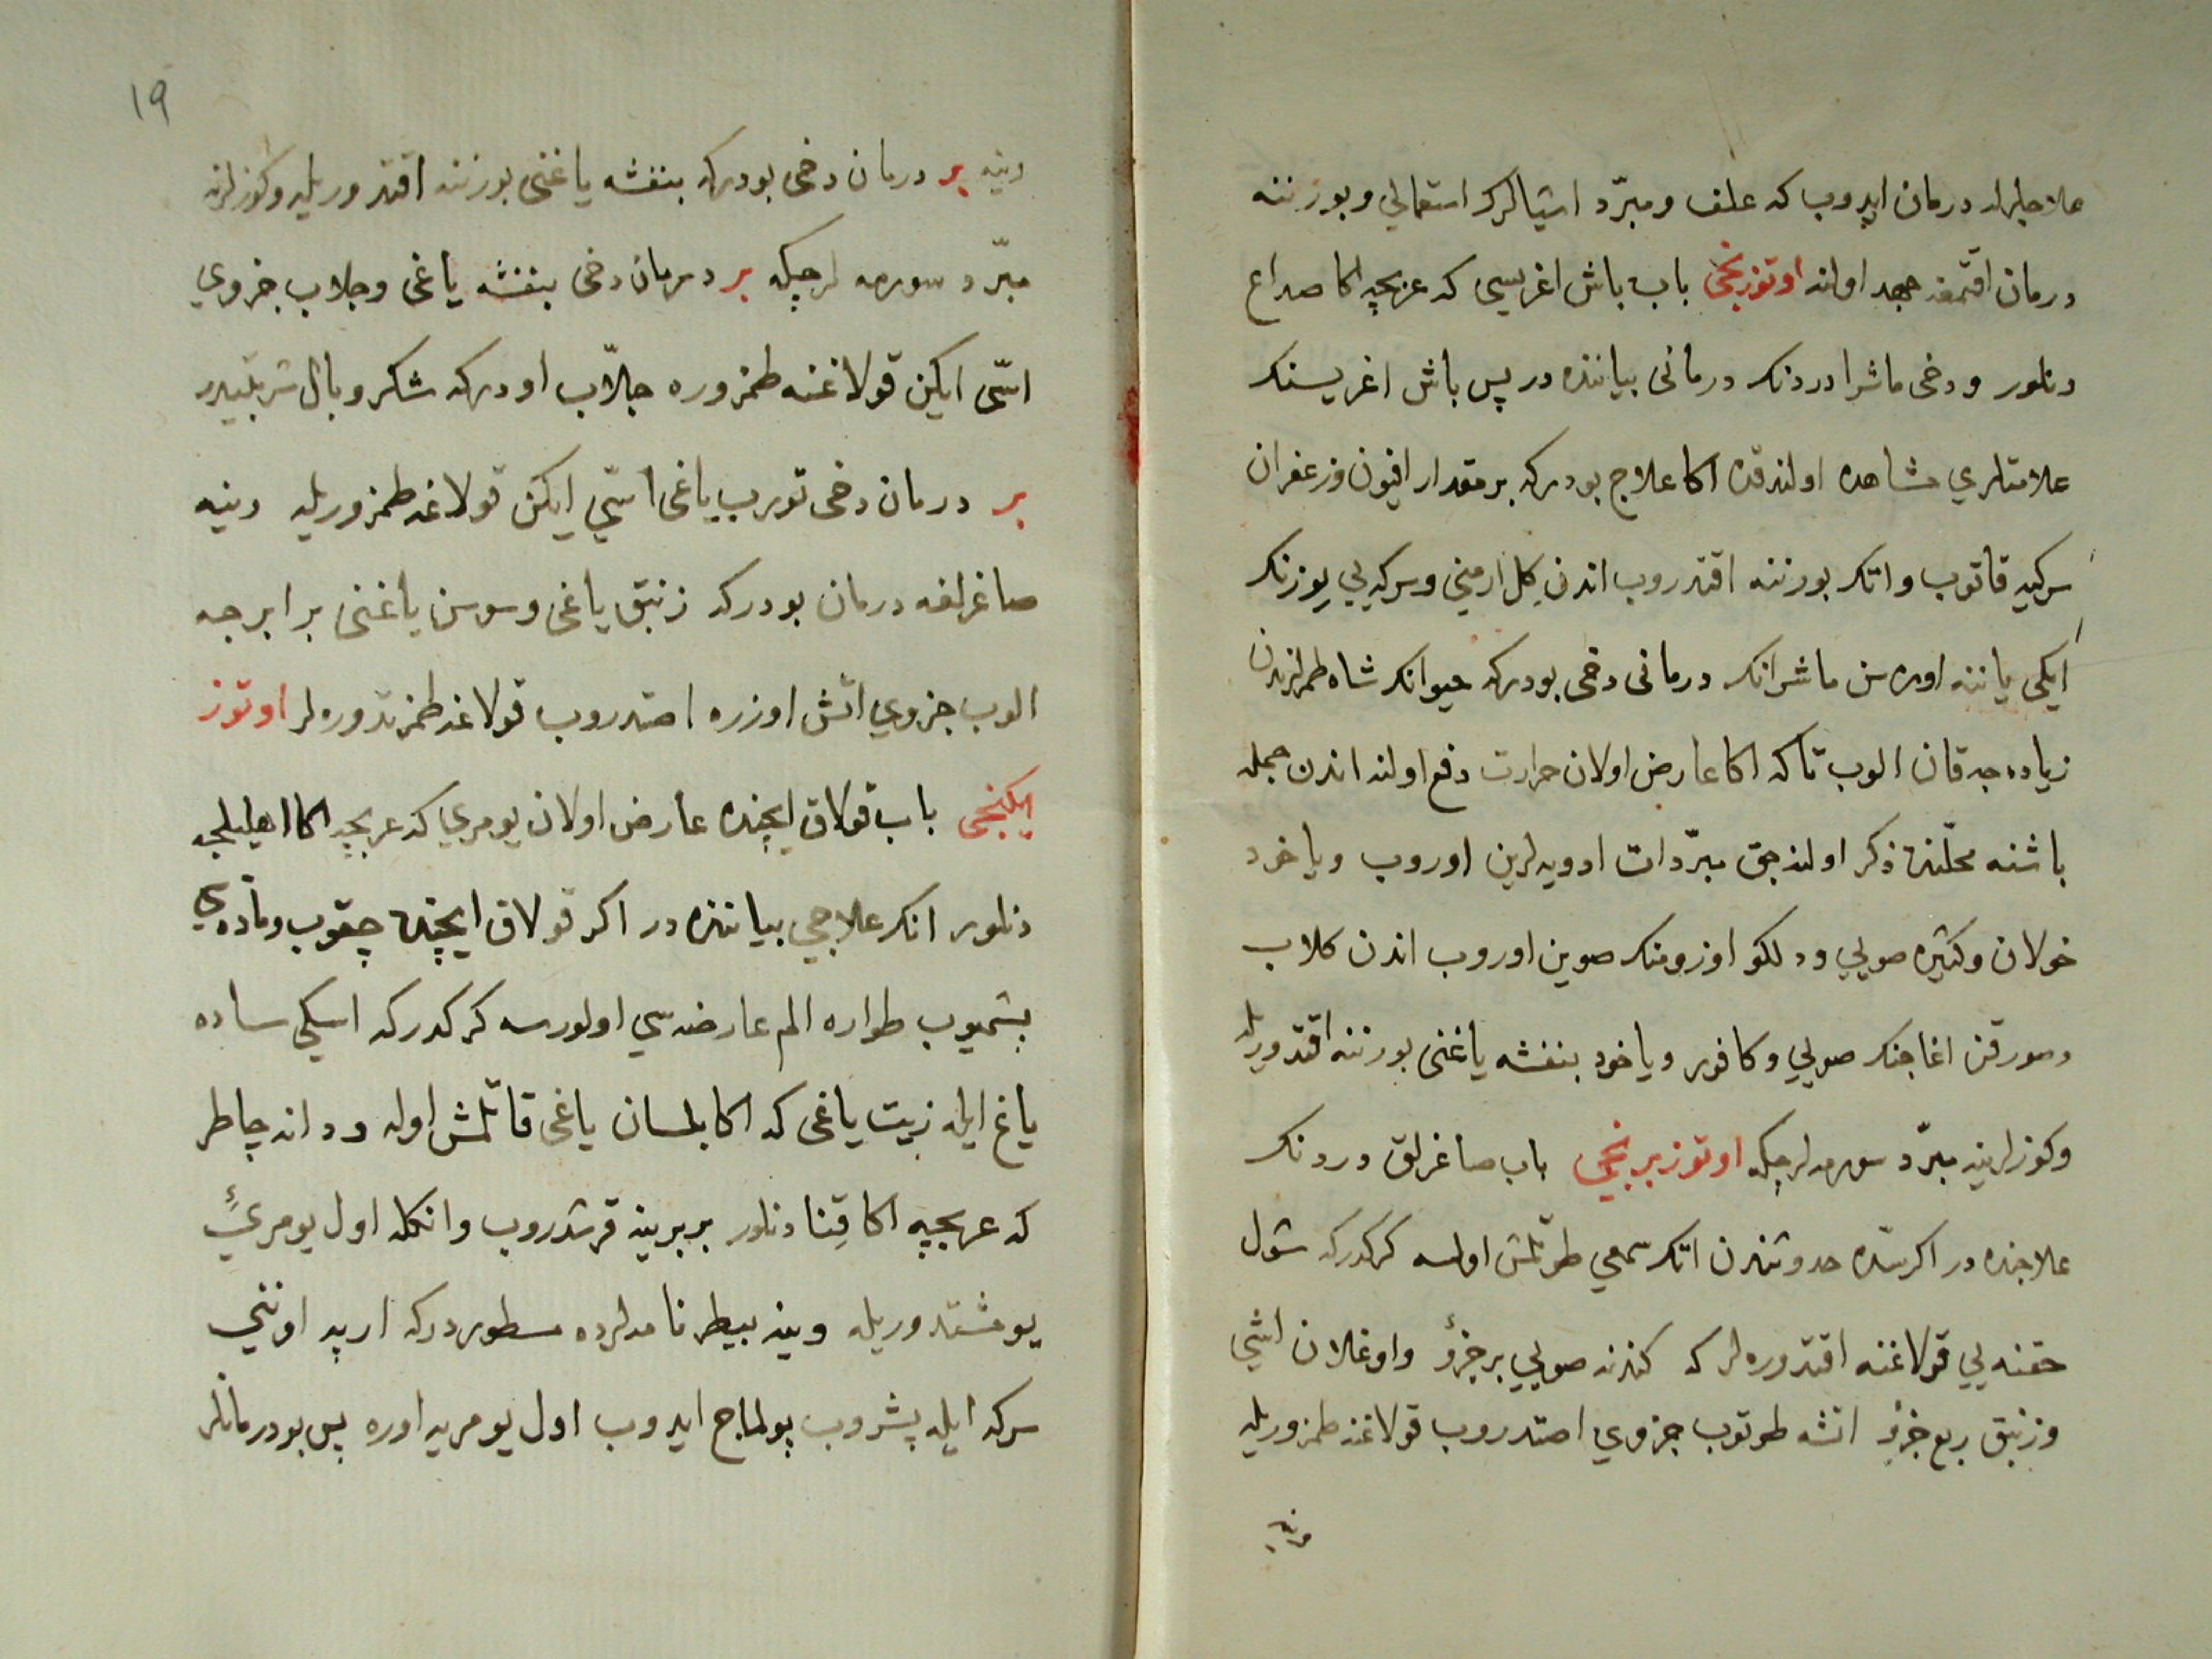 علاجلرله درمان ایدوب که علف و مبرّد اشیالرک استعمالی و بورننه
درمان اقتمغه جهد اولنه اوتوزنجی باب باش اغریسی که عربجه اکا صداع
دنلور ودخی ماشرا دردنک درمانی بیاننده در پس باش اغریسنک
علامتلری مشاهده اولندقده اکا علاج بودرکه بر مقدار افیون وزعفران
سرکیه قاتوب واتک بورننه اقتدروب اندن کل ارمنی وسرکه یی یوزنک
ایکی یاننه اوره سن ماشرانک درمانی دخی بودرکه حیوانک شاه طمرلرندن
زیاده جه قان الوب تاکه اکا عارض اولان حرارت دفع اولنه اندن جمله
باشنه محلّنده ذکر اولنه جق مبرّدات ادویه لرین اوروب ویاخود
خولان وکثیره صویی ودلکو اوزومنک صوین اوروب اندن کلاب
ومورقن اغاجنک صویی وکافور ویاخود بنفشه یاغنی بورننه اقتدوریله
وکوزلرینه مبرّد سورمه لر چکه اوتوز برنجی باب صاغرلق دردنک
علاجنده در اکر شده حدوثندن اتک سمعی طوتلمش اولسه کرکدرکه شول
حقنه یی قولاغنه اقتدوره لر که کندنه صویی بر جزؤ واوغلان اشی
وزنبق ربع جزؤ اتشه طوتوب جزوی اصتدروب قولاغنه طمزوریله
وینه
١٩
وینه بر درمان دخی بودرکه بنفشه یاغنی بورننه اقتدوریله وکوزلرنه
مبرّد سورمه لر چکه بر درمان دخی بنفشه یاغی وجلاب جزوی
اسّی ایکن قولاغنه طمزوره جلاّب اودرکه شکر وبال شربتیدر
بر درمان دخی تورب یاغی اسّی ایکن قولاغنه طمزوریله وینه
صاغرلغه درمان بودرکه زنبق یاغی وسوسن یاغنی برابرجه
الوب جزوی اتش اوزره اصتدروب قولاغنه طمزتدوره لر اوتوز
ایکنجی باب قولاق ایچنده عارض اولان یومری که عربجه اکا اهلیلجه
دنلور انک علاجی بیاننده در اکر قولاق ایچنده چقوب ومادّه یی
بشمیوب طواره الم عارضه سی اولورسه کرکدرکه اسکی ساده
یاغ ایله زیت یاغی که اکا بلسان یاغی قاتلمش اوله ودانه چاطر
که عربجه اکا قنا دنلور بربرینه قرشدروب وانکله اول یومریٔ
یومشتدوریله وینه بیطرنامه لرده مسطوردرکه ارپه اوننی
سرکه ایله پشروب پولماج ایدوب اول یومریه اوره پس بو درمانلر